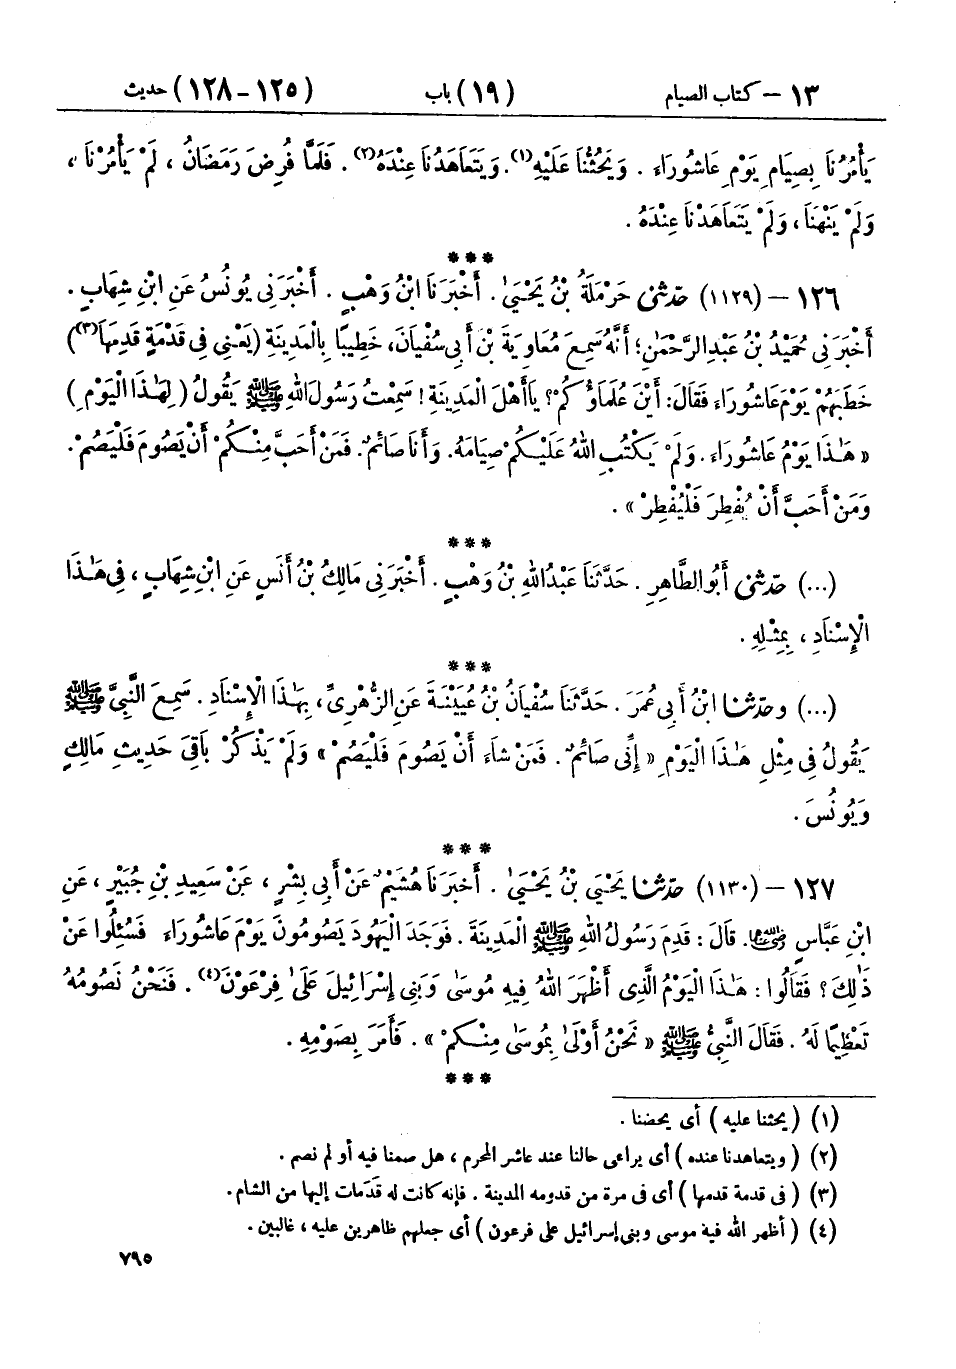 ١٣ – كتاب الصيام (١٩) باب (١٢٥ – ١٢٨) حديث
يَأْمُرُنَا بِصِيَامِ يَوْمِ عَاشُورَاءَ . وَيَحُثُّنَا عَلَيْهِ(١). وَيَتَعَاهَدُنَا عِنْدَهُ(٢) . فَلَمَّا فُرِضَ رَمَضَانُ ، لَمْ يَأْمُرْنَا ،
وَلَمْ يَنْهَنَا ، وَلَمْ يَتَعَاهَدْنَا عِنْدَهُ .
***
١٢٦ – (١١٢٩) حَدَّثَنِي حَرْمَلَةُ بْنُ يَحْيَىٰ . أَخْبَرَنَا ابْنُ وَهْبٍ . أَخْبَرَنِي يُونُسُ عَنِ ابْنِ شِهَابٍ .
أَخْبَرَنِي حُمَيْدُ بْنُ عَبْدِ الرَّحْمَنِ ؛ أَنَّهُ سَمِعَ مُعَاوِيَةَ بْنَ أَبِي سُفْيَانَ ، خَطِيبًا بِالْمَدِينَةِ (يَعْنِي فِي قَدْمَةٍ قَدِمَهَا(٣))
خَطَبَهُمْ يَوْمَ عَاشُورَاءَ فَقَالَ : أَيْنَ عُلَمَاؤُكُمْ ؟ يَا أَهْلَ الْمَدِينَةِ ! سَمِعْتُ رَسُولَ اللهِ ﷺ يَقُولُ (لِهَٰذَا الْيَوْمِ)
« هَٰذَا يَوْمُ عَاشُورَاءَ . وَلَمْ يَكْتُبِ اللهُ عَلَيْكُمْ صِيَامَهُ . وَأَنَا صَائِمٌ . فَمَنْ أَحَبَّ مِنْكُمْ أَنْ يَصُومَ فَلْيَصُمْ .
وَمَنْ أَحَبَّ أَنْ يُفْطِرَ فَلْيُفْطِرْ » .
***
(...) حَدَّثَنِي أَبُو الطَّاهِرِ . حَدَّثَنَا عَبْدُ اللهِ بْنُ وَهْبٍ . أَخْبَرَنِي مَالِكُ بْنُ أَنَسٍ عَنِ ابْنِ شِهَابٍ ، فِي هَٰذَا
الْإِسْنَادِ ، بِمِثْلِهِ .
***
(...) وحَدَّثَنَا ابْنُ أَبِي عُمَرَ . حَدَّثَنَا سُفْيَانُ بْنُ عُيَيْنَةَ عَنِ الزُّهْرِيِّ ، بِهَٰذَا الْإِسْنَادِ . سَمِعَ النَّبِيَّ ﷺ
يَقُولُ فِي مِثْلِ هَٰذَا الْيَوْمِ « إِنِّي صَائِمٌ . فَمَنْ شَاءَ أَنْ يَصُومَ فَلْيَصُمْ » وَلَمْ يَذْكُرْ بَاقِيَ حَدِيثِ مَالِكٍ
وَيُونُسَ .
***
١٢٧ – (١١٣٠) حَدَّثَنَا يَحْيَىٰ بْنُ يَحْيَىٰ . أَخْبَرَنَا هُشَيْمٌ عَنْ أَبِي بِشْرٍ ، عَنْ سَعِيدِ بْنِ جُبَيْرٍ ، عَنِ
ابْنِ عَبَّاسٍ رضي الله عنهما. قَالَ : قَدِمَ رَسُولُ اللهِ ﷺ الْمَدِينَةَ . فَوَجَدَ الْيَهُودَ يَصُومُونَ يَوْمَ عَاشُورَاءَ فَسُئِلُوا عَنْ
ذَٰلِكَ ؟ فَقَالُوا : هَٰذَا الْيَوْمُ الَّذِي أَظْهَرَ اللهُ فِيهِ مُوسَىٰ وَبَنِي إِسْرَائِيلَ عَلَىٰ فِرْعَوْنَ(٤) . فَنَحْنُ نَصُومُهُ
تَعْظِيمًا لَهُ . فَقَالَ النَّبِيُّ ﷺ « نَحْنُ أَوْلَىٰ بِمُوسَىٰ مِنْكُمْ » . فَأَمَرَ بِصَوْمِهِ .
***
(١) (يحثنا عليه) أى يحضنا .
(٢) (ويتعاهدنا عنده) أى يراعى حالنا عند عاشر المحرم ، هل صمنا فيه أو لم نصم .
(٣) (فى قدمة قدمها) أى فى مرة من قدومه المدينة . فإنه كانت له قَدَمات إليها من الشام .
(٤) (أظهر الله فيه موسى وبنى إسرائيل على فرعون) أى جعلهم ظاهرين عليه ، غالبين .
٧٩٥